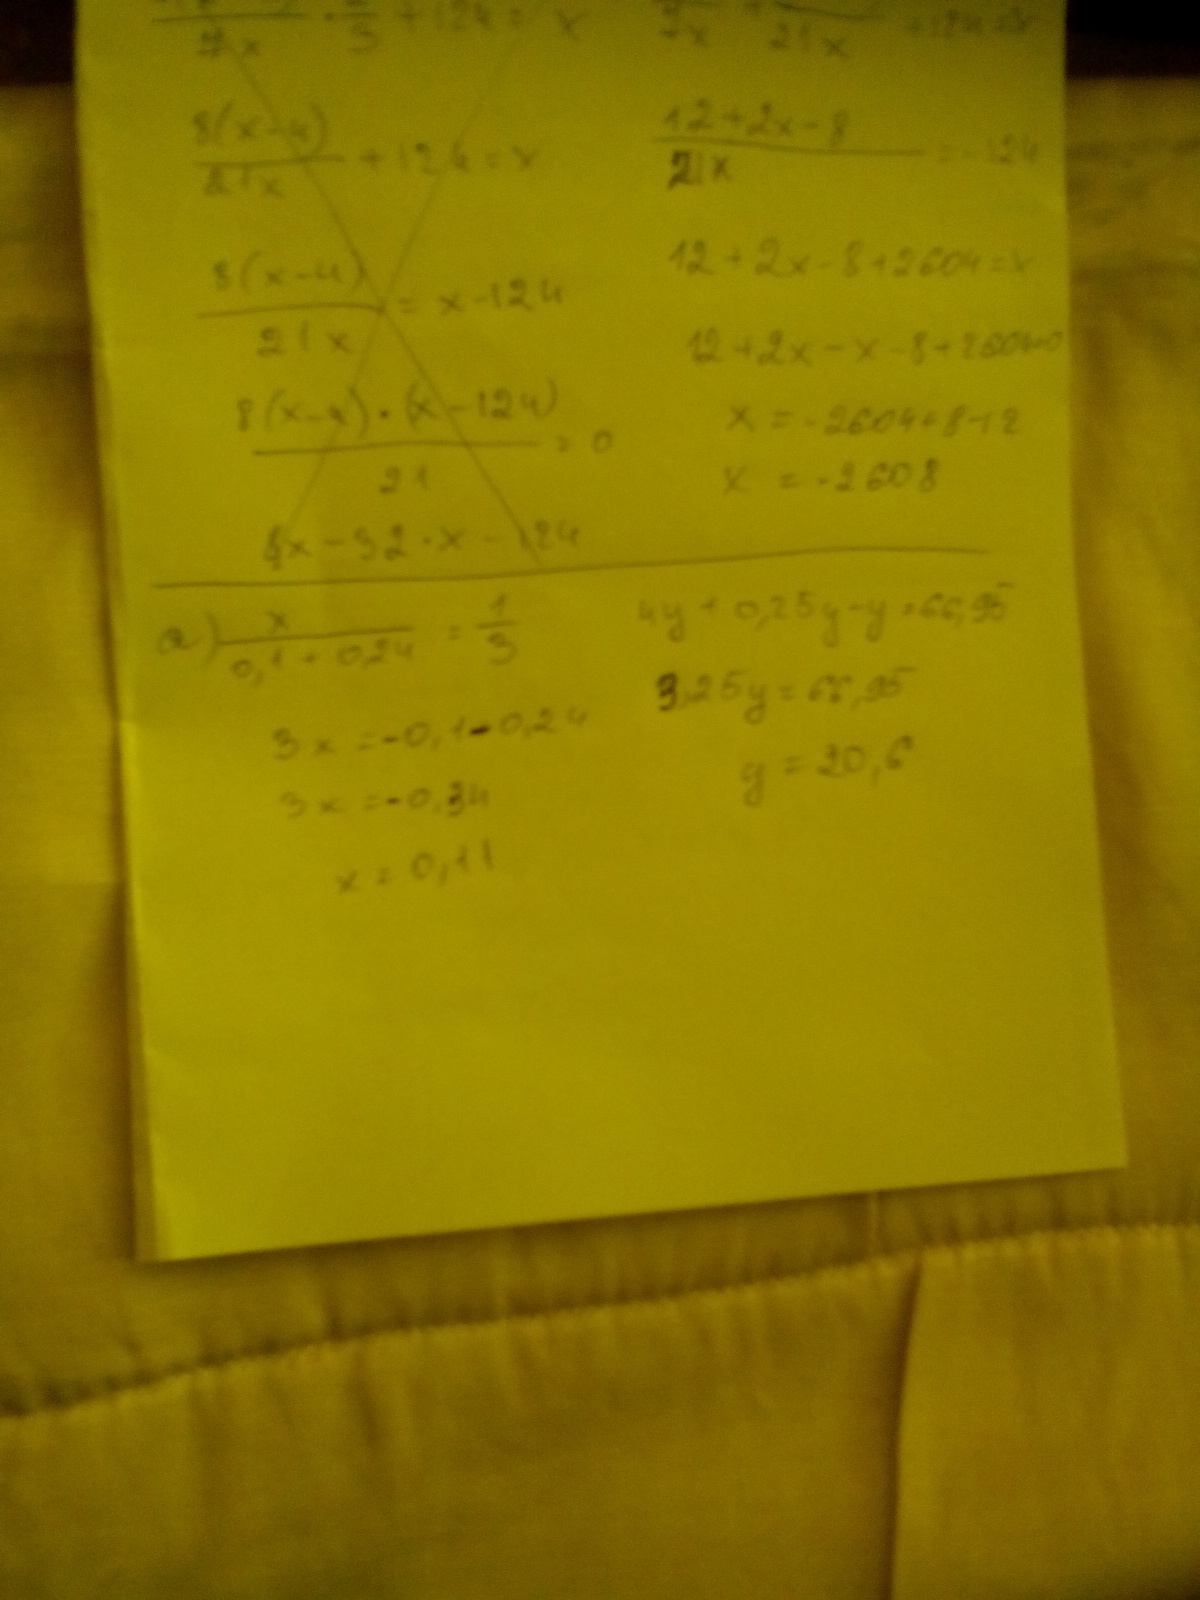 +124 = x
8(x-4)
21x
+124=x
8(x-4)
21x
= x-124
8(x-4)·(x-124)
21
= 0
8x-32·x-124
12+2x-8
21x
=-124
12+2x-8+2604=x
12+2x-x-8+2604=0
x=-2604+8-12
x=-2608
a) x
0,1+0,24
= 1
3
3x=-0,1-0,24
3x=-0,34
x=0,11
4y+0,25y-y=66,95
3,25y=66,95
y=20,6